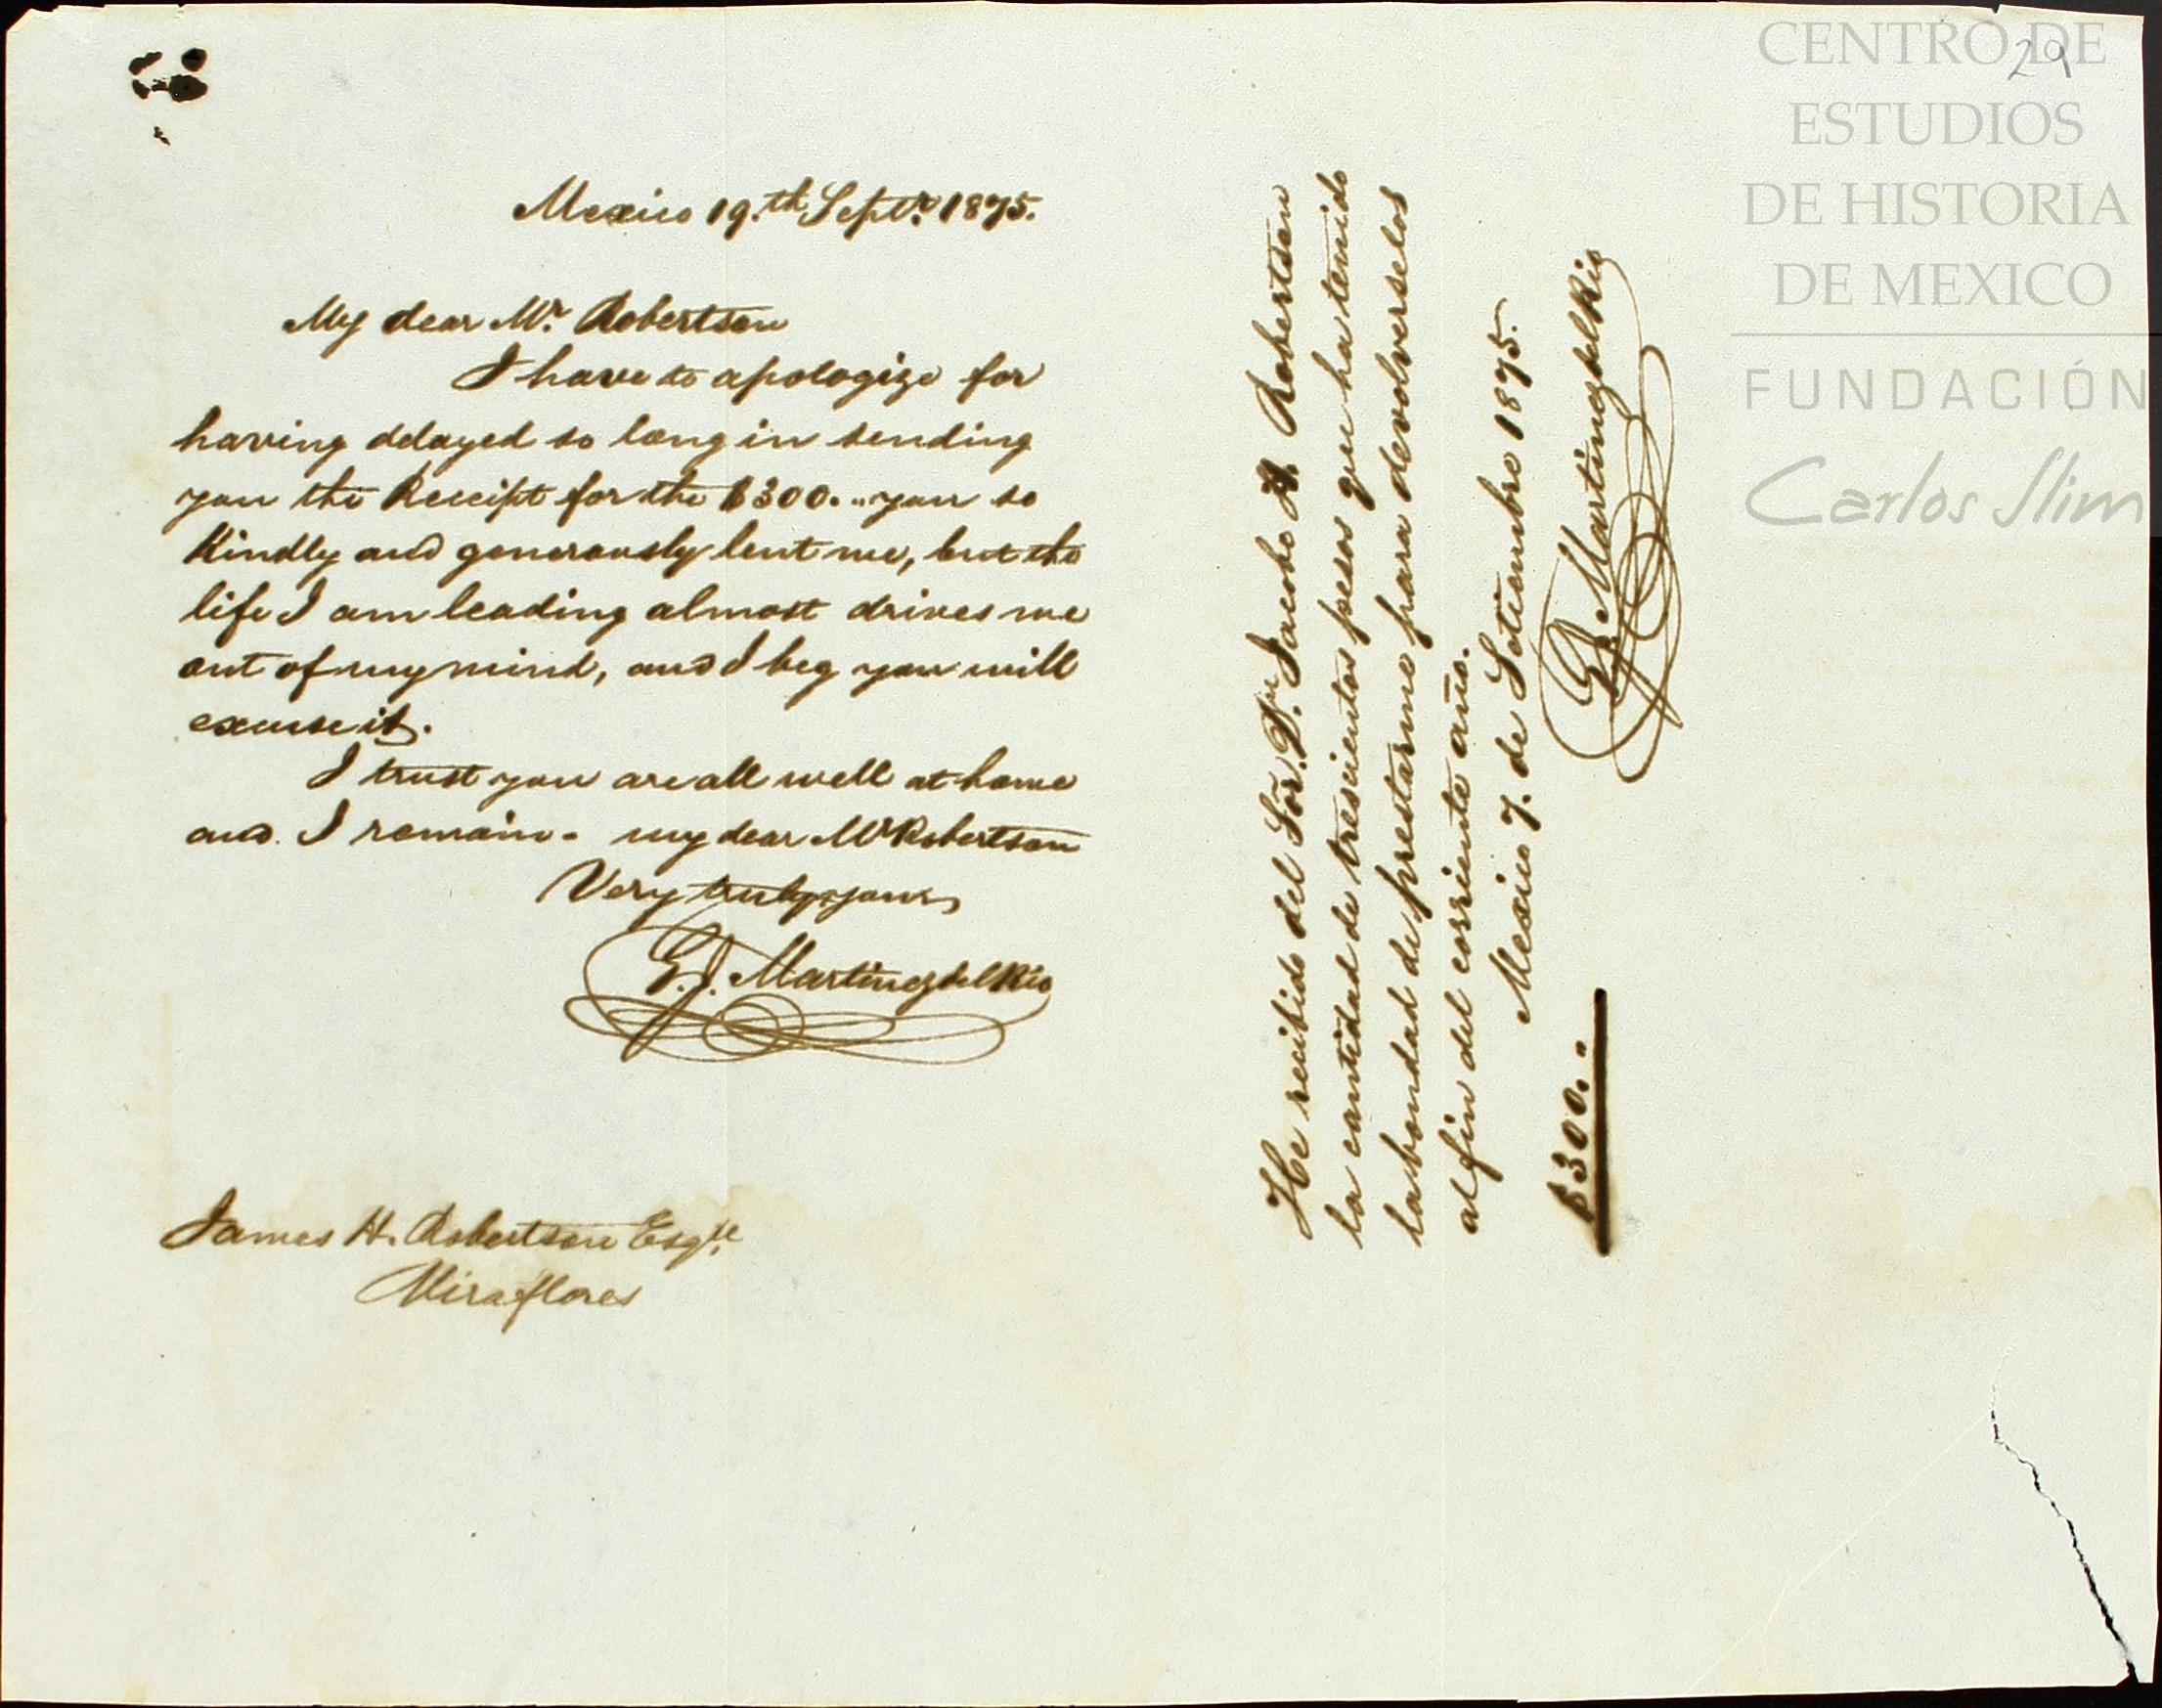 Mexico 19.th Septr. 1875.
My dear Mr. Robertson
I have to apologize for
having delayed so long in sending
you the Receipt for the $300. " you so
Kindly and generously lent me, but the
life I am leading almost drives me
out of my mind, and I beg you will
excuse it.
I trust you are all well at home
and. I remain - my dear Mr Robertson
Very truly yours
G. J. Martinez del Rio
James H. Robertson Esqre
Miraflores
He recibido del Sor. Dn. Jacobo H. Robertson
la cantidad de trescientos pesos que ha tenido
la bondad de prestarme para devolverselos
al fin del corriente año.
Mexico 7. de Setiembre 1875.
G. J. Martinez del Rio
$300. "
29
CENTRO DE
ESTUDIOS
DE HISTORIA
DE MEXICO
FUNDACIÓN
Carlos Slim